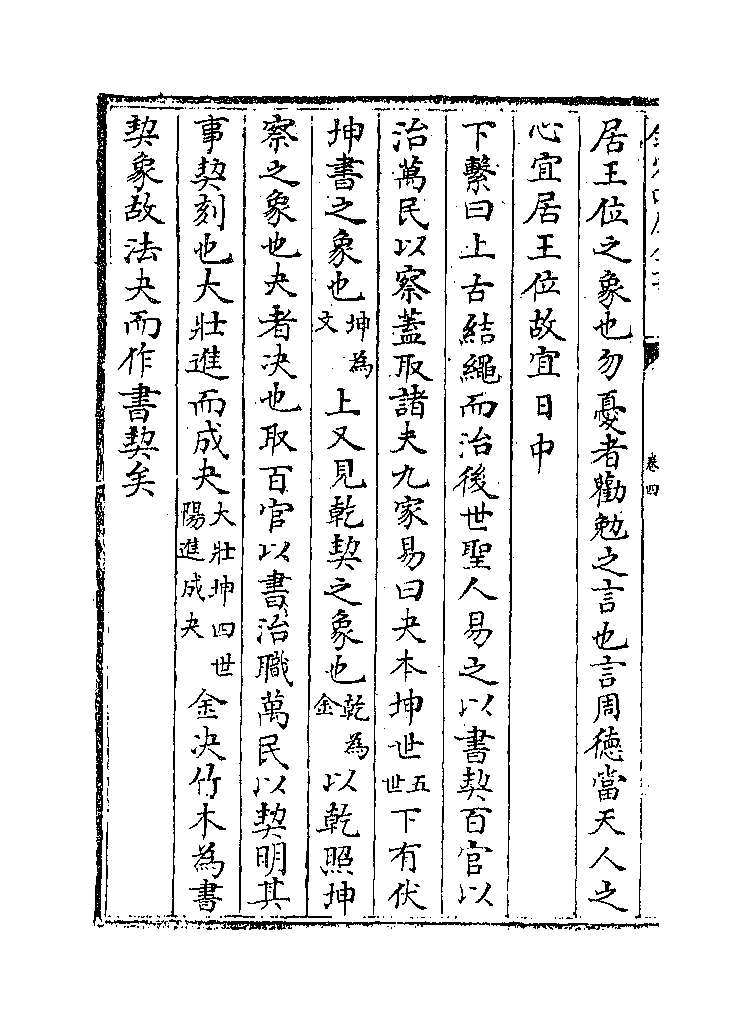 居王位之象也勿憂者勸勉之言也言周徳當天人之
心宜居王位故宜日中
下繫曰上古結繩而治後世聖人易之以書契百官以
治萬民以察蓋取諸夬九家易曰夬本坤世五世下有伏
坤書之象也坤為文上又見乾契之象也乾為金以乾照坤
察之象也夬者决也取百官以書治職萬民以契明其
事契刻也大壯進而成夬大壯坤四世陽進成夬金决竹木為書
契象故法夬而作書契矣
卷四